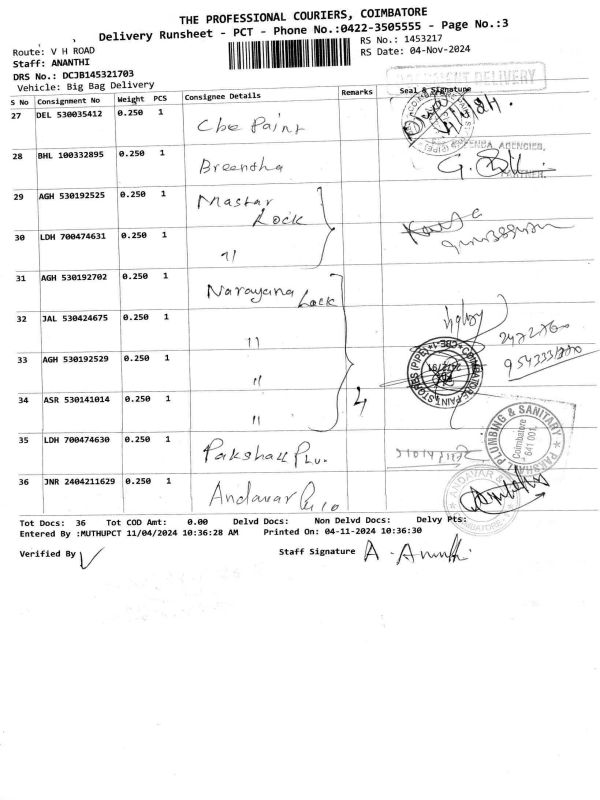 THE PROFESSIONAL COURIERS, COIMBATORE
Delivery Runsheet - PCT - Phone No.:0422-3505555 - Page No.:3
Route: V H ROAD
RS No.: 1453217
Staff: ANANTHI
RS Date: 04-Nov-2024
DRS No.: DCJB145321703
Vehicle: Big Bag Delivery
DELIVERY
S No Consignment No Weight PCS Consignee Details Remarks Seal & Signature
27 DEL 530035412 0.250 1 Cbe Paint
28 BHL 100332895 0.250 1 Breentha
AGENCIES,
PARTNER.
29 AGH 530192525 0.250 1 Mastar Lock
30 LDH 700474631 0.250 1 "
31 AGH 530192702 0.250 1 Narayana Lock
32 JAL 530424675 0.250 1 "
33 AGH 530192529 0.250 1 "
COIMBATORE PAINT STORES (PIPE) * CBE-1 *
34 ASR 530141014 0.250 1 " 4
35 LDH 700474630 0.250 1 Pakshall Plu.
PLUMBING & SANITARY
Coimbatore
641 001.
36 JNR 2404211629 0.250 1 Andavar
ANDAVAR &
COIMBATORE
Tot Docs: 36 Tot COD Amt: 0.00 Delvd Docs: Non Delvd Docs: Delvy Pts:
Entered By :MUTHUPCT 11/04/2024 10:36:28 AM Printed On: 04-11-2024 10:36:30
Verified By
Staff Signature A. Ananthi